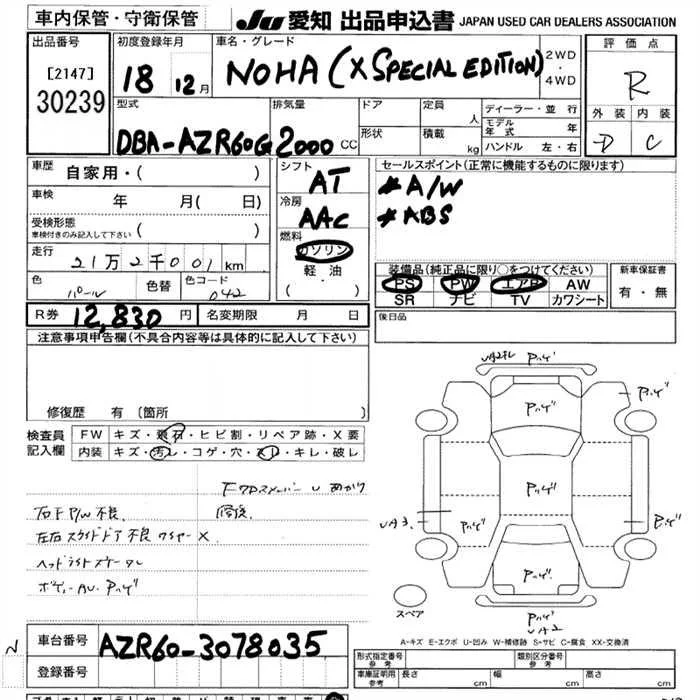 車内保管・守衛保管
JU 愛知 出品申込書 JAPAN USED CAR DEALERS ASSOCIATION
出品番号
[2147]
30239
初度登録年月
18 12月
車名・グレード
NOHA (X SPECIAL EDITION)
2WD
・
4WD
評価点
R
外装 内装
D C
型式
DBA-AZR60G
排気量
2000 CC
ドア
形状
定員 人
積載 kg
ディーラー・並行
モデル年式 年
ハンドル 左・右
車歴 自家用・( )
車検 年 月( 日)
受検形態
車検付きのみ記入して下さい ( )
走行 21万2千001km
色 パール 色替 色コード 042
シフト
AT
冷房
AAC
燃料
ガソリン
軽油
( ・ )
セールスポイント(正常に機能するものに限ります)
*A/W
*ABS
装備品(純正品に限り○をつけてください)
PS PW エアB AW
SR ナビ TV カワシート
新車保証書
有・無
R券 12,830円 名変期限 月 日
後日品
注意事項申告欄(不具合内容等は具体的に記入して下さい)
修復歴 有 〔箇所
検査員
記入欄
FW キズ・飛石・ヒビ割・リペア跡・X要
内装 キズ・汚レ・コゲ・穴・スレ・キレ・破レ
右下P/W不良
左右スライドドア不良 ワイヤーX
修復
スペア
A-キズ E-エクボ U-凹み W-補修跡 S-サビ C-腐食 XX-交換済
車台番号 AZR60-3078035
登録番号
形式指定番号
参考
類別区分番号
参考
車庫証明用
参考
長さ cm 幅 cm 高さ cm